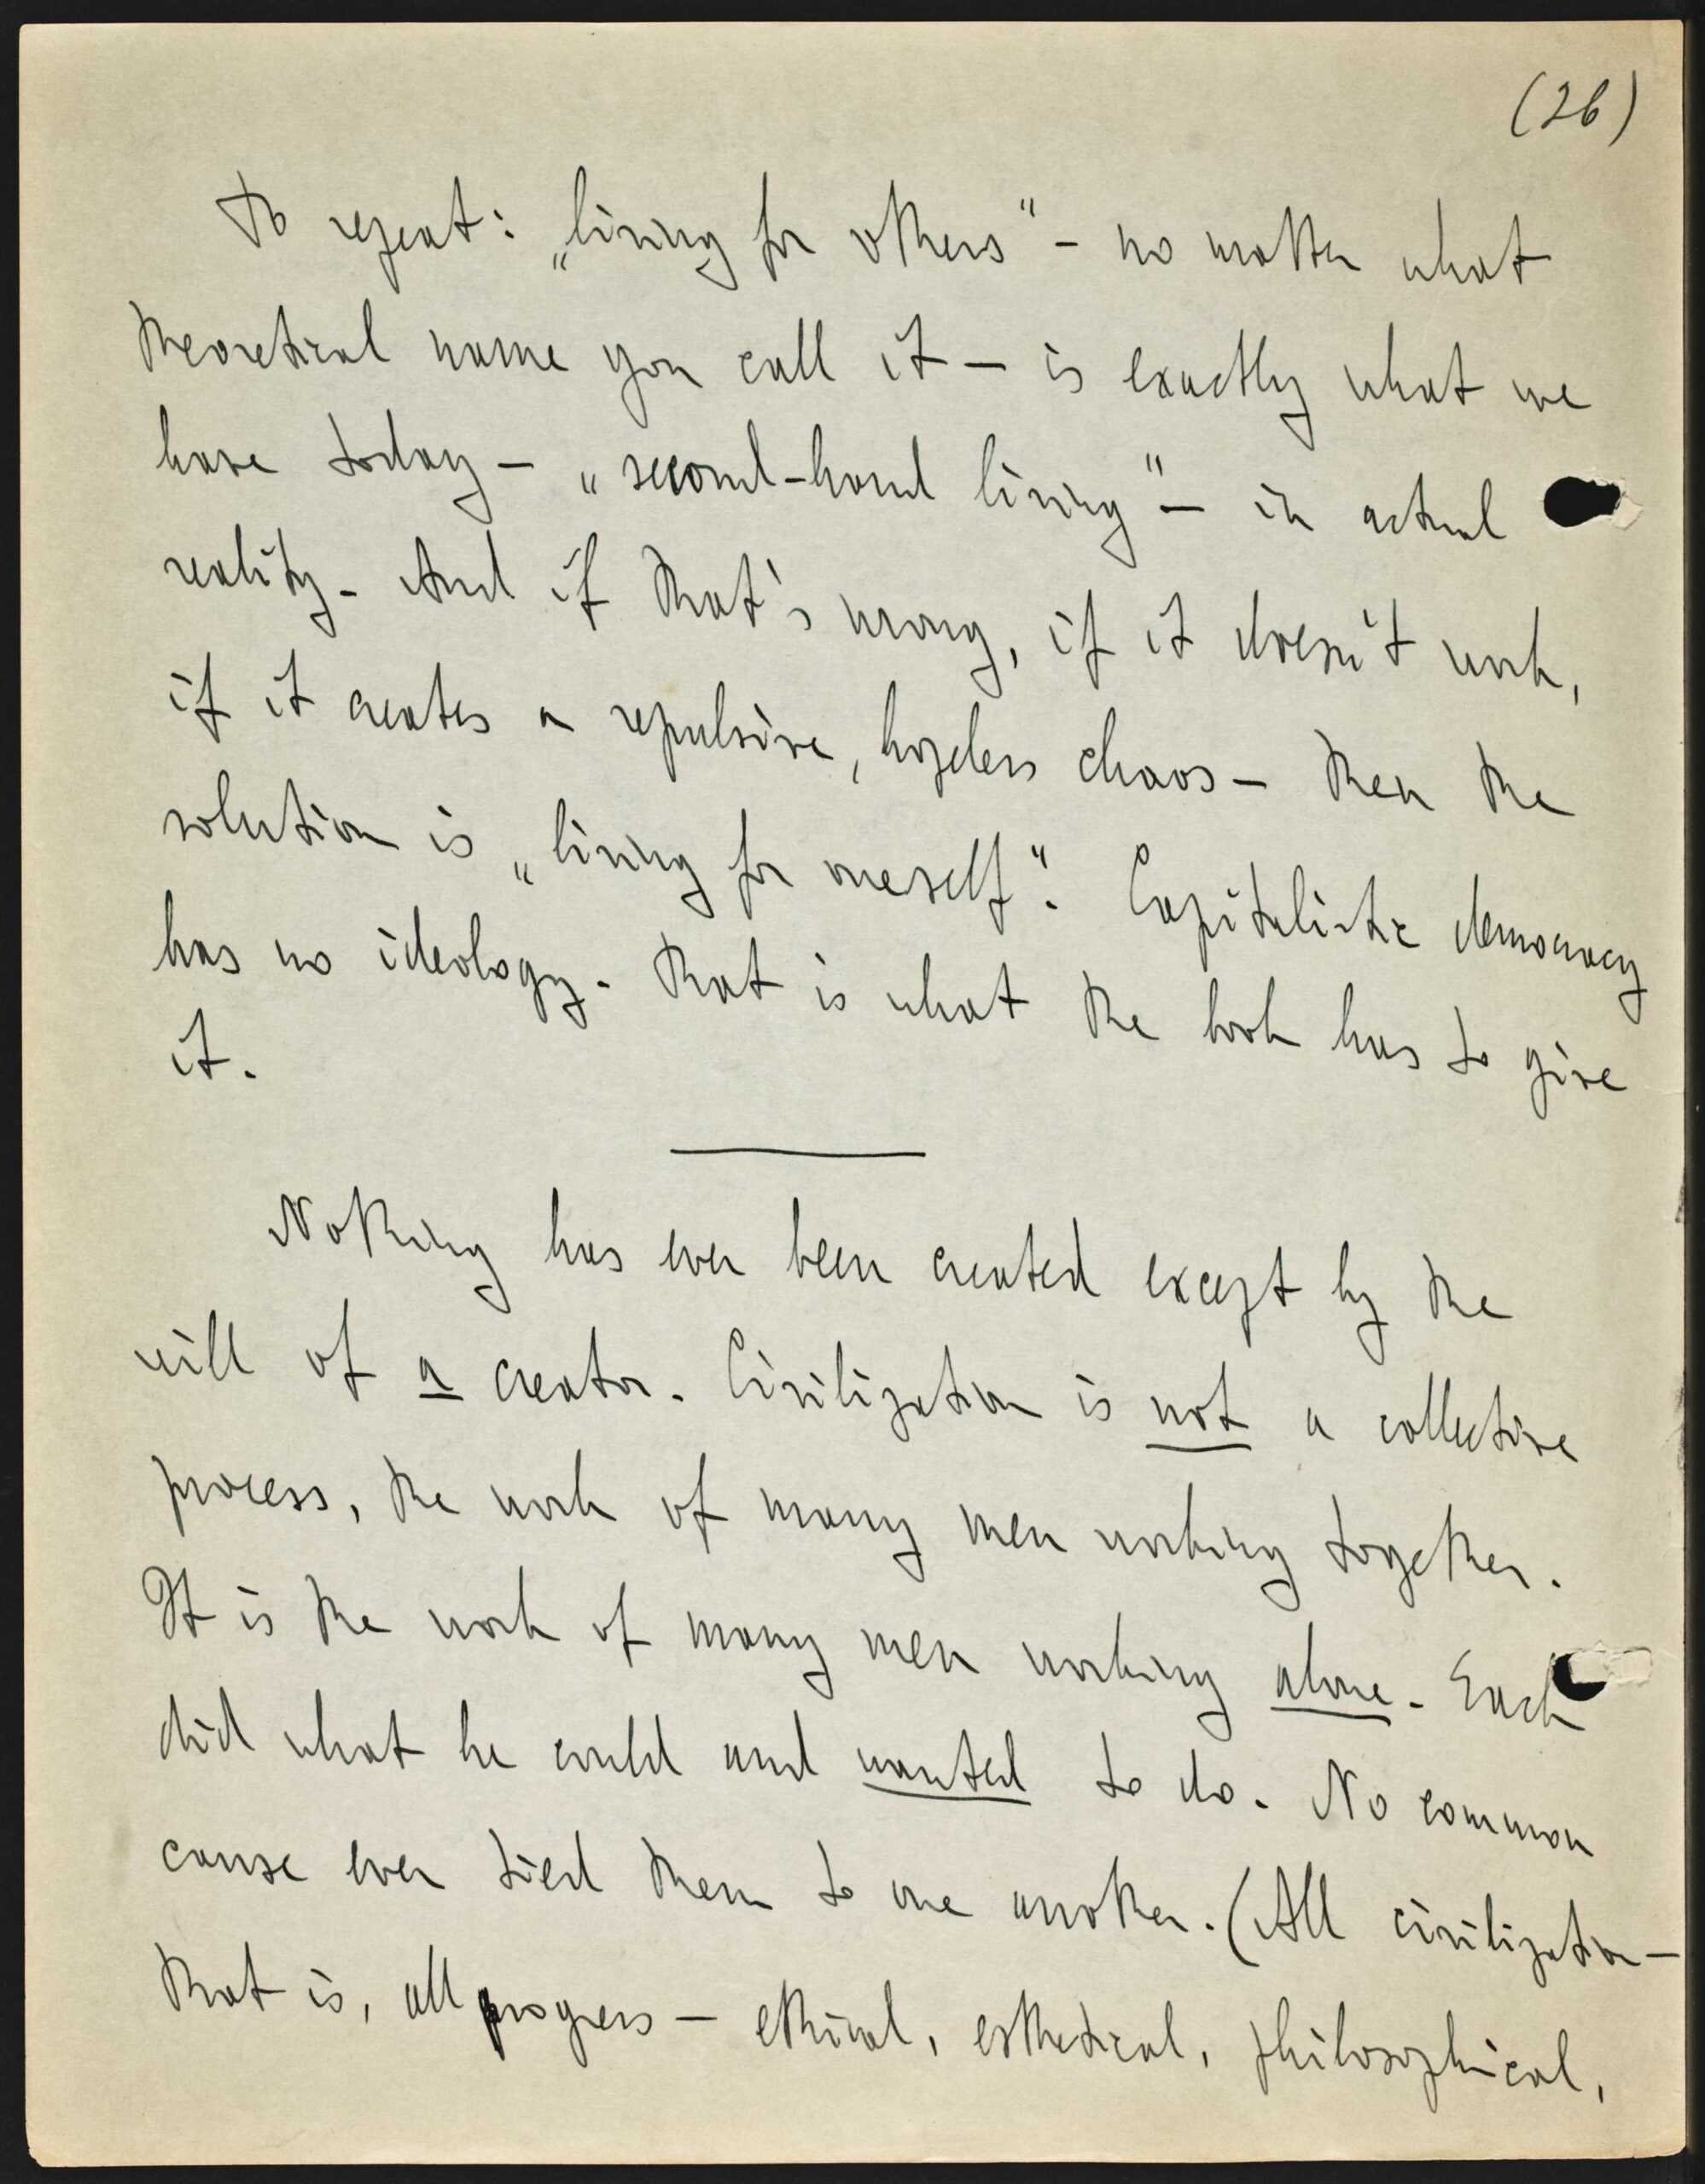 (26)
To repeat: „living for others" - no matter what
theoretical name you call it — is exactly what we
have today — „second-hand living" — in actual
reality. And if that's wrong, if it doesn't work,
if it creates a repulsive, hopeless chaos — then the
solution is „living for oneself". Capitalistic democracy
has no ideology. That is what the book has to give
it.
Nothing has ever been created except by the
will of a creator. Civilization is not a collective
process, the work of many men working together.
It is the work of many men working alone. Each
did what he could and wanted to do. No common
cause ever tied them to one another. (All civilization —
that is, all progress — ethical, esthetical, philosophical,